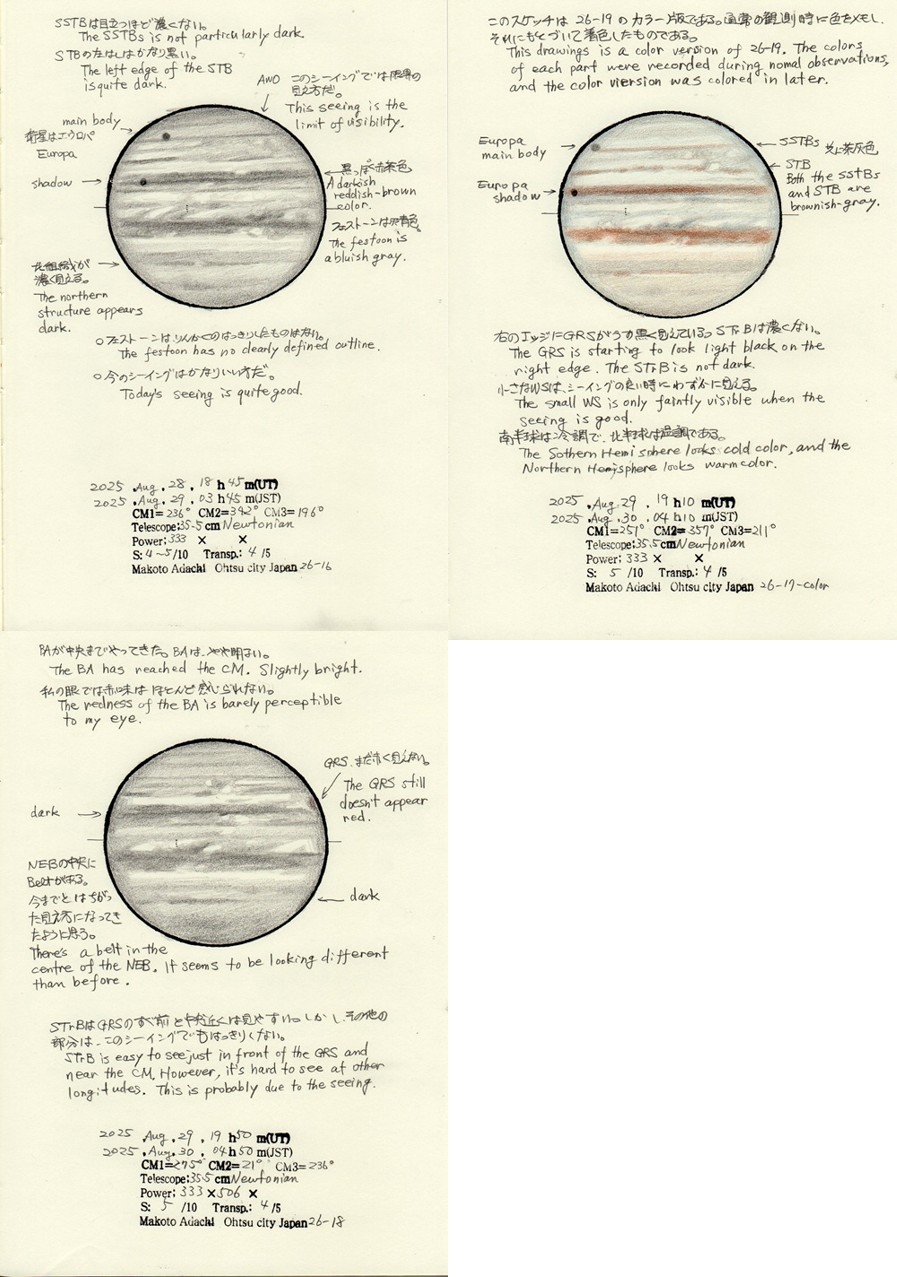 SSTBは目立つほど濃くない。
The SSTBs is not particularly dark.
STBの左はしはかなり黒い。
The left edge of the STB
is quite dark.
AWO このシーイングでは限界の
見え方だ。
This seeing is the
limit of visibility.
main body
衛星はエウロパ
Europa
shadow
黒っぽく赤茶色
A darkish
reddish-brown
color.
フェストーンは灰青色。
The festoon is
a bluish gray.
北組織が
濃く見える。
The northern
structure appears
dark.
○フェストーンはりんかくのはっきりしたものはない。
The festoon has no clearly defined outline.
○今のシーイングはかなりいい方だ。
Today's seeing is quite good.
2025 .Aug. 28 . 18 h 45 m(UT)
2025 .Aug. 29 . 03 h 45 m(JST)
CM1= 236° CM2= 342° CM3= 196°
Telescope:35.5 cm Newtonian
Power: 333 × ×
S: 4~5/10 Transp.: 4 /5
Makoto Adachi Ohtsu city Japan 26-16
このスケッチは 26-19 のカラー版である。通常の観測時に色をメモし、
それにもとづいて着色したものである。
This drawings is a color version of 26-19. The colors
of each part were recorded during nomal observations,
and the color version was colored in later.
Europa
main body
Europa
shadow
SSTBs 共に茶灰色
STB
Both the SSTBs
and STB are
brownish-gray.
右のエッジにGRSがうす黒く見えている。STrBは濃くない。
The GRS is starting to look light black on the
right edge. The STrB is not dark.
小さなWSは、シーイングの良い時にわずかに見える。
The small WS is only faintly visible when the
seeing is good.
南半球は冷調で、北半球は温調である。
The Sothern Hemisphere looks cold color, and the
Northern Hemisphere looks warm color.
2025 .Aug. 29 . 19 h 10 m(UT)
2025 .Aug. 30 . 04 h 10 m(JST)
CM1= 251° CM2= 357° CM3= 211°
Telescope:35.5 cm Newtonian
Power: 333 × ×
S: 5 /10 Transp.: 4 /5
Makoto Adachi Ohtsu city Japan 26-17-color
BAが中央までやってきた。BAは、やや明るい。
The BA has reached the CM. Slightly bright.
私の眼では赤味はほとんど感じられない。
The redness of the BA is barely perceptible
to my eye.
GRS、まだ赤く見えない。
The GRS still
doesn't appear
red.
dark
NEBの中央に
Beltがある。
今までとはちがっ
た見え方になってき
たように思う。
There's a belt in the
centre of the NEB. It seems to be looking different
than before.
dark
STrBはGRSのすぐ前と中央近くは見やすい。しかし、その他の
部分は、このシーイングでもはっきりしない。
STrB is easy to see just in front of the GRS and
near the CM. However, it's hard to see at other
longitudes. This is probably due to the seeing.
2025 .Aug. 29 . 19 h 50 m(UT)
2025 .Aug. 30 . 04 h 50 m(JST)
CM1= 275° CM2= 21° CM3= 236°
Telescope:35.5 cm Newtonian
Power: 333 × 506 ×
S: 5 /10 Transp.: 4 /5
Makoto Adachi Ohtsu city Japan 26-18